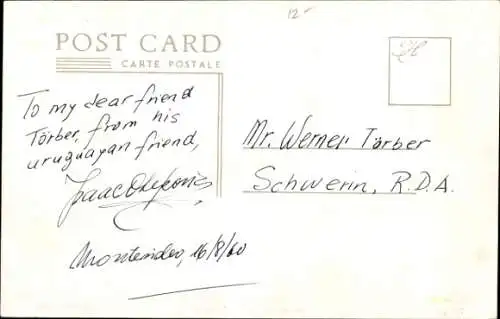 12-
POST CARD
CARTE POSTALE
To my dear friend
Törber, from his
uruguayan friend,
Isaac
Montevideo, 16/8/60
Mr. Werner Törber
Schwerin, R.D.A.